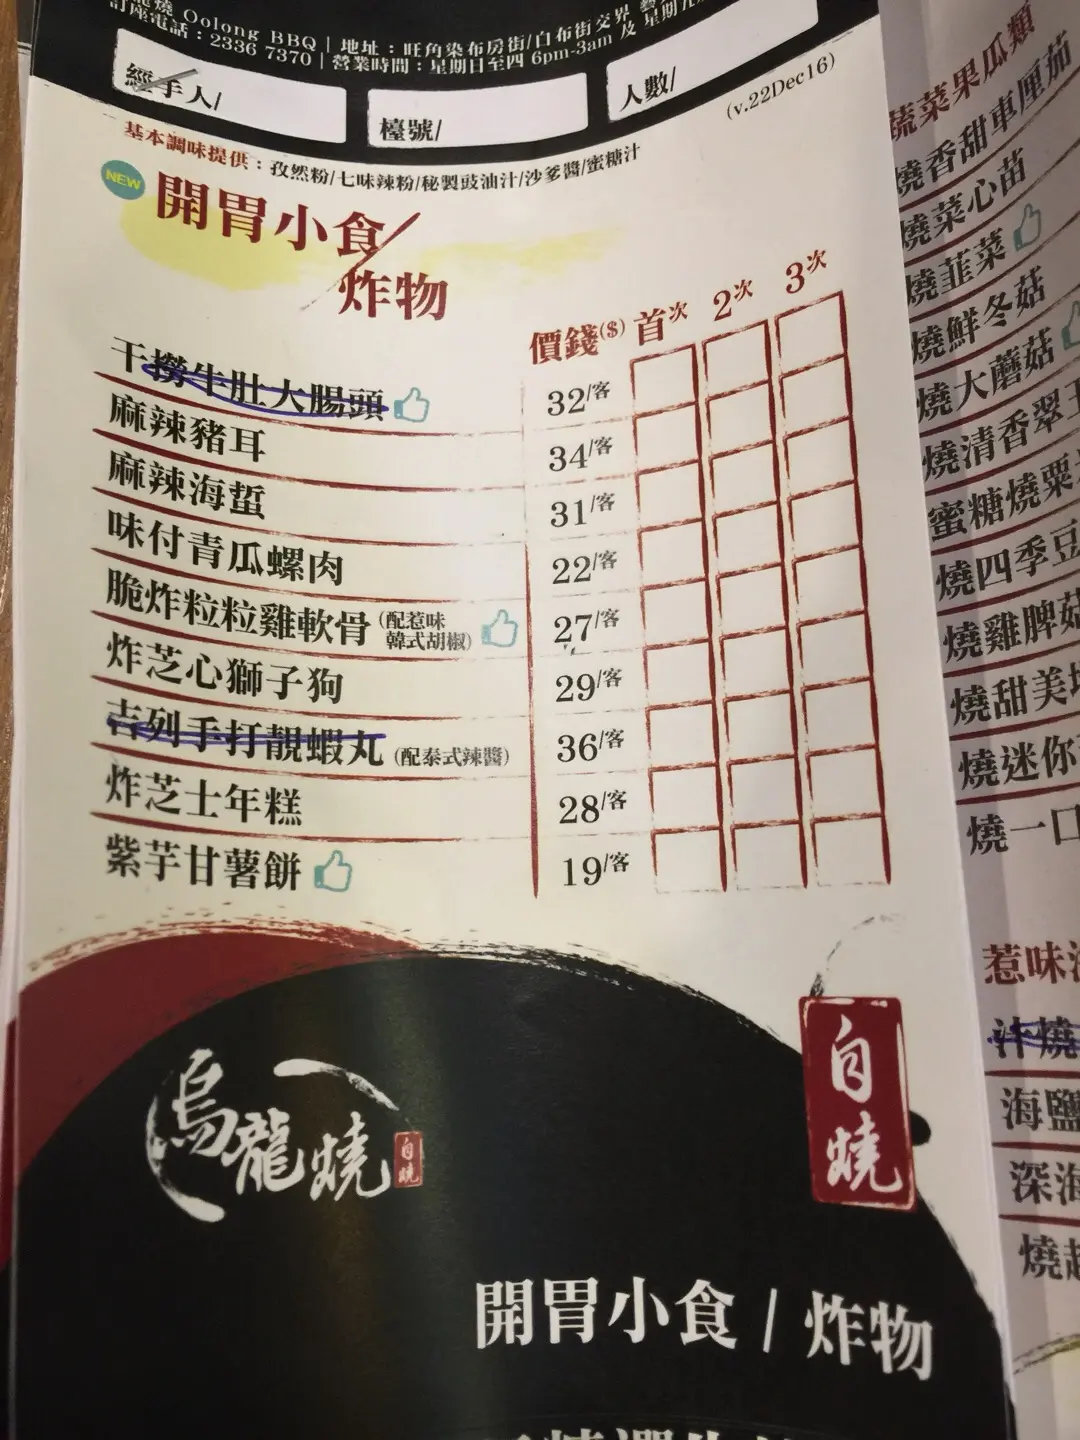 Oolong BBQ | 地址：旺角染布房街/白布街交界
訂座電話：2336 7370 | 營業時間：星期日至四 6pm-3am 及 星期五
經手人/
檯號/
人數/
(v.22Dec16)
基本調味提供：孜然粉/七味辣粉/秘製豉油汁/沙爹醬/蜜糖汁
NEW
開胃小食/
炸物
價錢($) 首次 2次 3次
干撈牛肚大腸頭 32/客
麻辣豬耳 34/客
麻辣海蜇 31/客
味付青瓜螺肉 22/客
脆炸粒粒雞軟骨 (配惹味韓式胡椒) 27/客
炸芝心獅子狗 29/客
吉列手打靚蝦丸 (配泰式辣醬) 36/客
炸芝士年糕 28/客
紫芋甘薯餅 19/客
烏龍燒 自燒
自燒
開胃小食 / 炸物
蔬菜果瓜類
燒香甜車厘茄
燒菜心苗
燒韮菜
燒鮮冬菇
燒大蘑菇
燒清香翠
蜜糖燒粟
燒四季豆
燒雞脾菇
燒甜美
燒迷你
燒一口
惹味
汁燒
海鹽
深海
燒